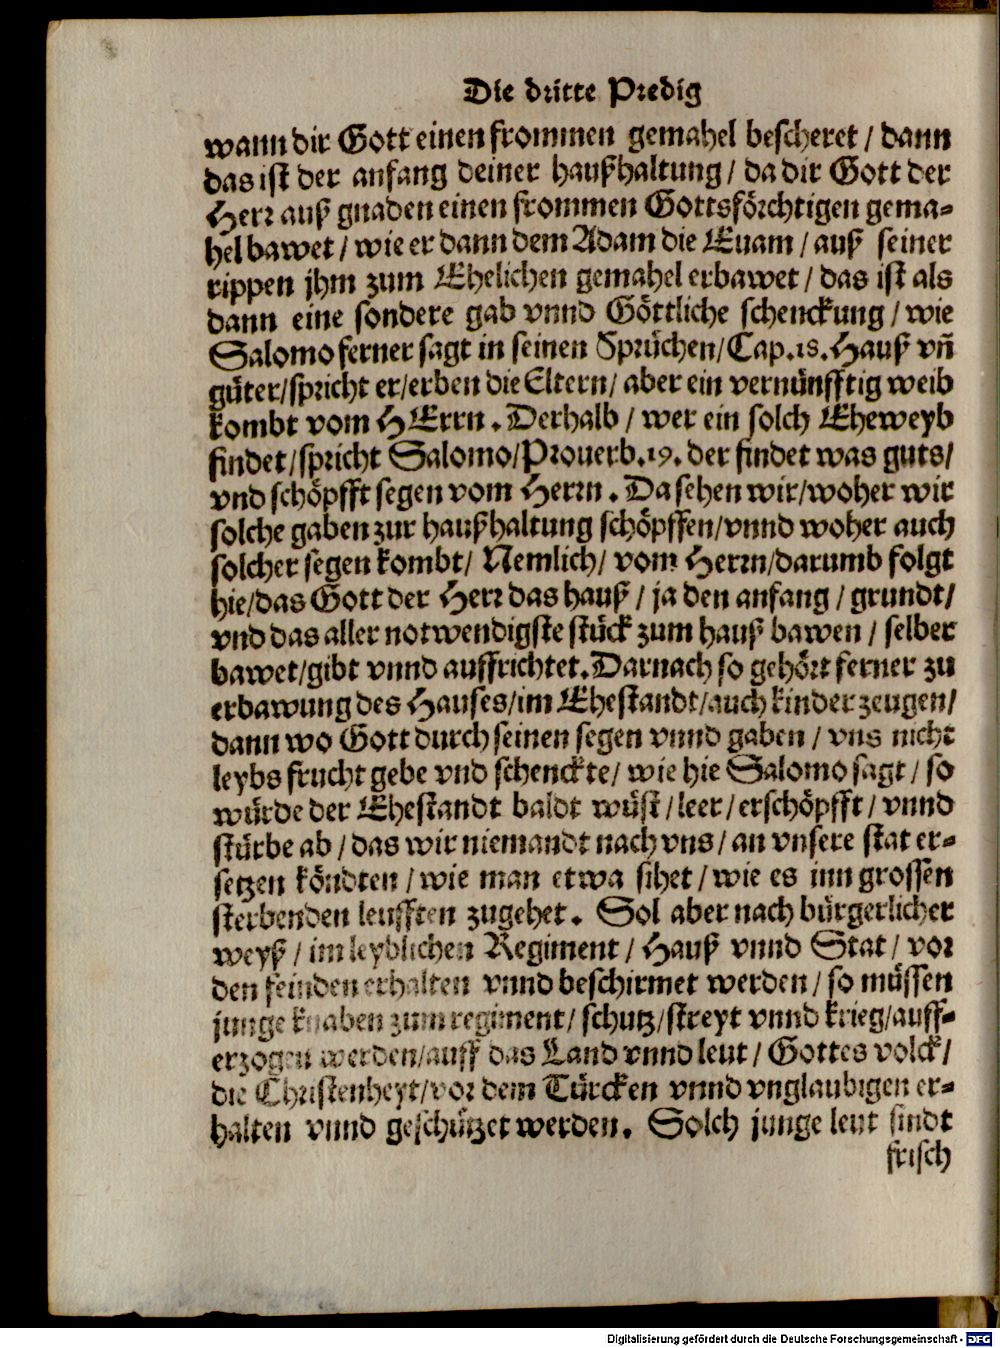 Die dritte Predig
wann dir Gott einen frommen gemahel bescheret / dann
das ist der anfang deiner haußhaltung / da dir Gott der
Herr auß gnaden einen frommen Gottsförchtigen gema-
hel bawet / wie er dann dem Adam die Euam / auß seiner
rippen jhm zum Ehelichen gemahel erbawet / das ist als
dann eine sondere gab vnnd Göttliche schenckung / wie
Salomo ferner sagt in seinen Sprüchen / Cap.18. Hauß vñ
güter / spricht er / erben die Eltern / aber ein vernünfftig weib
kombt vom HErrn. Derhalb / wer ein solch Eheweyb
findet / spricht Salomo / Prouerb.19. der findet was guts /
vnd schöpfft segen vom Herrn. Da sehen wir / woher wir
solche gaben zur haußhaltung schöpffen / vnnd woher auch
solcher segen kombt / Nemlich / vom Herrn / darumb folgt
hie / das Gott der Herr das hauß / ja den anfang / grundt /
vnd das aller notwendigste stück zum hauß bawen / selber
bawet / gibt vnnd auffrichtet. Darnach so gehört ferner zu
erbawung des Hauses / im Ehestandt / auch kinder zeugen /
dann wo Gott durch seinen segen vnnd gaben / vns nicht
leybs frucht gebe vnd schenckte / wie hie Salomo sagt / so
würde der Ehestandt baldt wüst / leer / erschöpfft / vnnd
stürbe ab / das wir niemandt nach vns / an vnsere stat er-
setzen köndten / wie man etwa sihet / wie es inn grossen
sterbenden leufften zugehet. Sol aber nach bürgerlicher
weyß / im leyblichen Regiment / Hauß vnnd Stat / vor
den feinden erhalten vnnd beschirmet werden / so müssen
junge knaben zum regiment / schutz / streyt vnnd krieg / auff-
erzogen werden / auff das Land vnnd leut / Gottes volck /
die Christenheyt / vor dem Türcken vnnd vnglaubigen er-
halten vnnd geschützet werden. Solch junge leut sindt
frisch
Digitalisierung gefördert durch die Deutsche Forschungsgemeinschaft - DFG